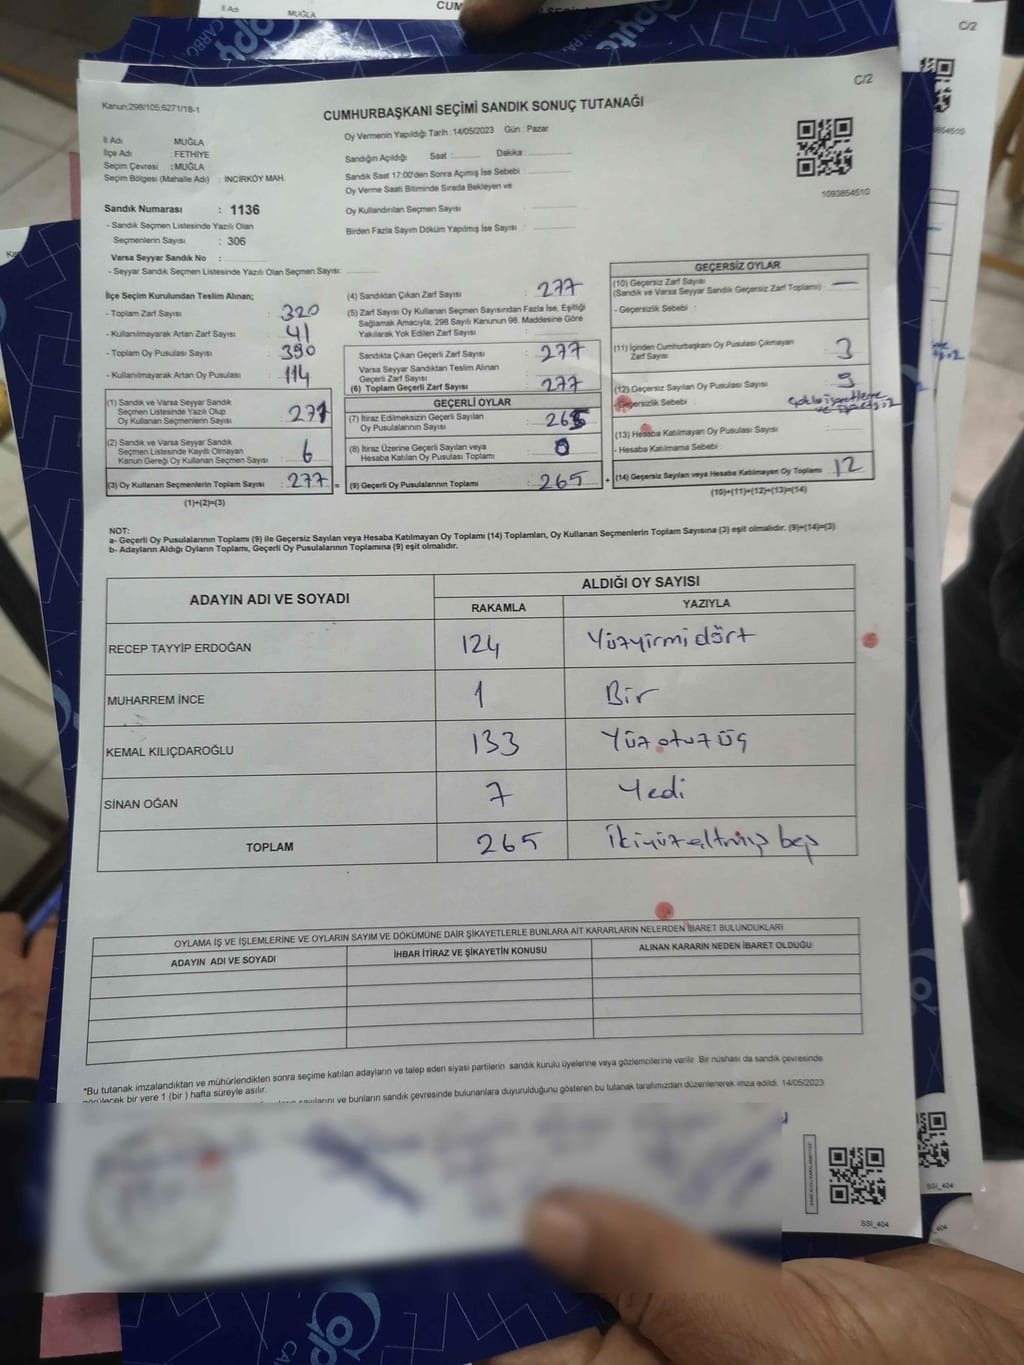 C/2
C/2
Kanun:298/105,6271/18-1
CUMHURBAŞKANI SEÇİMİ SANDIK SONUÇ TUTANAĞI
İl Adı MUĞLA
İlçe Adı : FETHİYE
Seçim Çevresi : MUĞLA
Seçim Bölgesi (Mahalle Adı) : INCIRKÖY MAH.
Sandık Numarası : 1136
- Sandık Seçmen Listesinde Yazılı Olan
Seçmenlerin Sayısı : 306
Varsa Seyyar Sandık No :
- Seyyar Sandık Seçmen Listesinde Yazılı Olan Seçmen Sayısı:
Oy Vermenin Yapıldığı Tarih : 14/05/2023 Gün : Pazar
Sandığın Açıldığı Saat : Dakika :
Sandık Saat 17:00'den Sonra Açımış İse Sebebi :
Oy Verme Saati Bitiminde Sırada Bekleyen ve
Oy Kullandırılan Seçmen Sayısı :
Birden Fazla Sayım Döküm Yapılmış İse Sayısı :
1093854510
İlçe Seçim Kurulundan Teslim Alınan;
- Toplam Zarf Sayısı : 320
- Kullanılmayarak Artan Zarf Sayısı : 41
- Toplam Oy Pusulası Sayısı : 390
- Kullanılmayarak Artan Oy Pusulası : 114
(1) Sandık ve Varsa Seyyar Sandık
Seçmen Listesinde Yazılı Olup
Oy Kullanan Seçmenlerin Sayısı : 271
(2) Sandık ve Varsa Seyyar Sandık
Seçmen Listesinde Kayıtlı Olmayan
Kanun Gereği Oy Kullanan Seçmen Sayısı : 6
(3) Oy Kullanan Seçmenlerin Toplam Sayısı : 277 =
(1)+(2)=(3)
(4) Sandıktan Çıkan Zarf Sayısı : 277
(5) Zarf Sayısı Oy Kullanan Seçmen Sayısından Fazla İse, Eşitliği
Sağlamak Amacıyla; 298 Sayılı Kanunun 98. Maddesine Göre
Yakılarak Yok Edilen Zarf Sayısı :
Sandıkta Çıkan Geçerli Zarf Sayısı : 277
Varsa Seyyar Sandıktan Teslim Alınan
Geçerli Zarf Sayısı
(6) Toplam Geçerli Zarf Sayısı : 277
GEÇERLİ OYLAR
(7) İtiraz Edilmeksizin Geçerli Sayılan
Oy Pusulalarının Sayısı : 265
(8) İtiraz Üzerine Geçerli Sayılan veya
Hesaba Katılan Oy Pusulası Toplamı : 0
(9) Geçerli Oy Pusulalarının Toplamı : 265 +
GEÇERSİZ OYLAR
(10) Geçersiz Zarf Sayısı
(Sandık ve Varsa Seyyar Sandık Geçersiz Zarf Toplamı) : —
- Geçersizlik Sebebi :
(11) İçinden Cumhurbaşkanı Oy Pusulası Çıkmayan
Zarf Sayısı : 3
(12) Geçersiz Sayılan Oy Pusulası Sayısı : 9
- Geçersizlik Sebebi :
(13) Hesaba Katılmayan Oy Pusulası Sayısı :
- Hesaba Katılmama Sebebi :
(14) Geçersiz Sayılan veya Hesaba Katılmayan Oy Toplamı : 12
(10)+(11)+(12)+(13)=(14)
NOT:
a- Geçerli Oy Pusulalarının Toplamı (9) ile Geçersiz Sayılan veya Hesaba Katılmayan Oy Toplamı (14) Toplamları, Oy Kullanan Seçmenlerin Toplam Sayısına (3) eşit olmalıdır. (9)+(14)=(3)
b- Adayların Aldığı Oyların Toplamı, Geçerli Oy Pusulalarının Toplamına (9) eşit olmalıdır.
ADAYIN ADI VE SOYADI
ALDIĞI OY SAYISI
RAKAMLA YAZIYLA
RECEP TAYYİP ERDOĞAN 124 Yüzyirmi dört
MUHARREM İNCE 1 Bir
KEMAL KILIÇDAROĞLU 133 Yüz otuz üç
SİNAN OĞAN 7 Yedi
TOPLAM 265 İkiyüz altmış beş
OYLAMA İŞ VE İŞLEMLERİNE VE OYLARIN SAYIM VE DÖKÜMÜNE DAİR ŞİKAYETLERLE BUNLARA AİT KARARLARIN NELERDEN İBARET BULUNDUKLARI
ADAYIN ADI VE SOYADI İHBAR İTİRAZ VE ŞİKAYETİN KONUSU ALINAN KARARIN NEDEN İBARET OLDUĞU
*Bu tutanak imzalandıktan ve mühürlendikten sonra seçime katılan adayların ve talep eden siyasi partilerin sandık kurulu üyelerine veya gözlemcilerine verilir. Bir nüshası da sandık çevresinde
görülecek bir yere 1 (bir) hafta süreyle asılır.
sayılarını ve bunların sandık çevresinde bulunanlara duyurulduğunu gösteren bu tutanak tarafımızdan düzenlenerek imza edildi. 14/05/2023
SSI_404
SSI_404